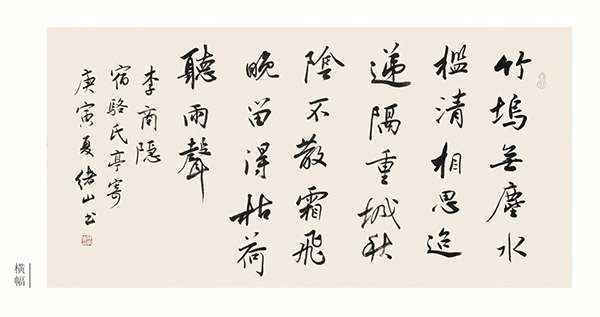 竹塢無塵水
檻清相思迢
遞隔重城秋
陰不散霜飛
晚留得枯荷
聽雨聲
李商隐
宿駱氏亭寄
庚寅夏绪山书
横幅